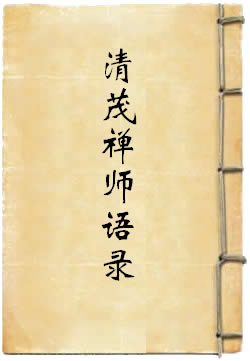 清茂禅师语录